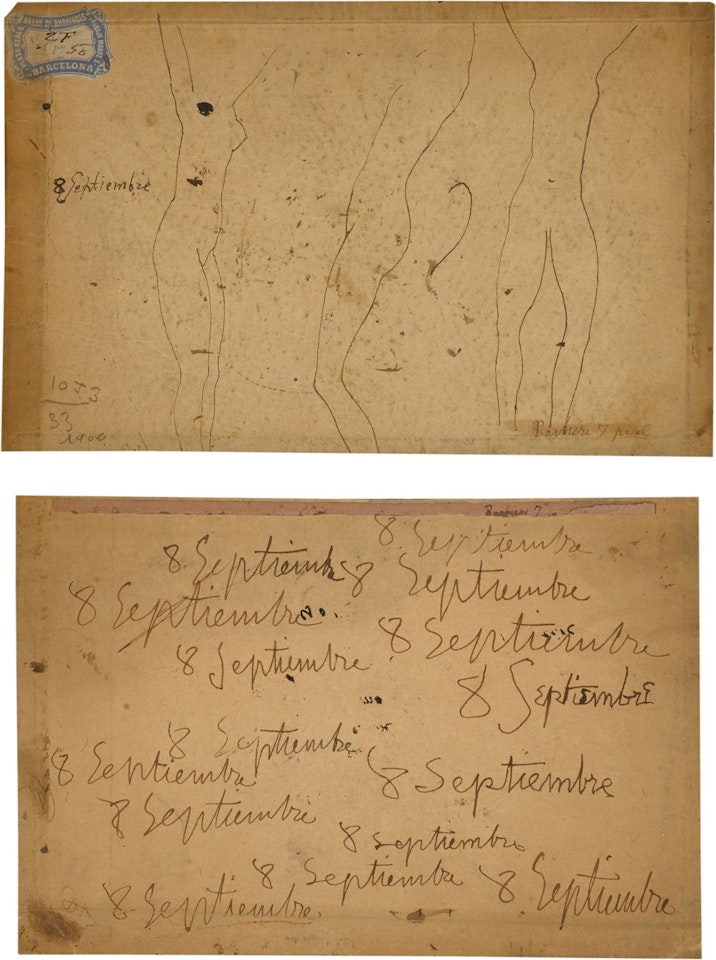 BARCELONA
8 Septiembre
33
1900
8 Septiembre
8 Septiembre
8 Septiembre
8 Septiembre
8 Septiembre
8 Septiembre
8 Septiembre
8 Septiembre
8 Septiembre
8 Septiembre
8 Septiembre
8 septiembre
8 Septiembre
8 Septiembre
8 Septiembre